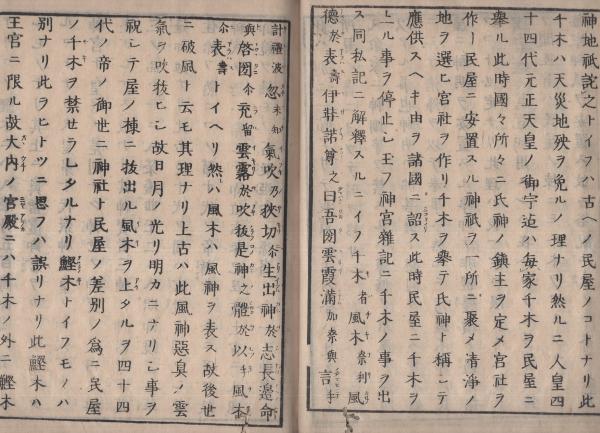 神地祇詫之トイフハ古ヘノ民屋ノコトナリ此
千木ハ天災地殃ヲ免ルノ理ナリ然ルニ人皇四
十四代元正天皇ノ御宇迠ハ每家千木ヲ民屋ニ
舉ル此時國々所々ニ氏神ノ鎭主ヲ定メ宮社ヲ
作ー民屋ニ安置スル神祇ヲ一所ニ聚メ清淨ノ
地ヲ選ヒ宮社ヲ作リ千木ヲ舉テ氏神ト稱シテ
應供スヘキ由ヲ諸國ニ詔ス此時民屋ニ千木ヲ
上ル事ヲ停止シ玉フ神宮雜記ニ千木ノ事ヲ出
ス同私記ニ解釋スルニイフ千木者風木
德於表壽伊弉諾尊之曰吾国雲霞滿加
計禮波忽未知氣吹乃狹切尓生出神於志長邉命
與啓国尓充留雲霧於吹後是神之體於以千風木
尓表壽トイヘリ然ハ風木ハ風神ヲ表ス故後世
ニ破風ト云モ其理ナリ上古ハ此風神惡臭ノ雲
氣ヲ吹抜ヒシ故日月ノ光リ明カニナリシ事ヲ
祝シテ屋ノ棟ニ抜出ル風木ヲ上タルヲ四十四
代ノ帝ノ御世ニ神社ト民屋ノ差別ノ爲ニ民屋
ノ千木ヲ禁セラレタルナリ鰹木トイフモノハ
別ナリ此ラヒトツニ思フハ誤リナリ此鰹木ハ
王宮ニ限ル故大内ノ宮殿ニハ千木ノ外ニ鰹木